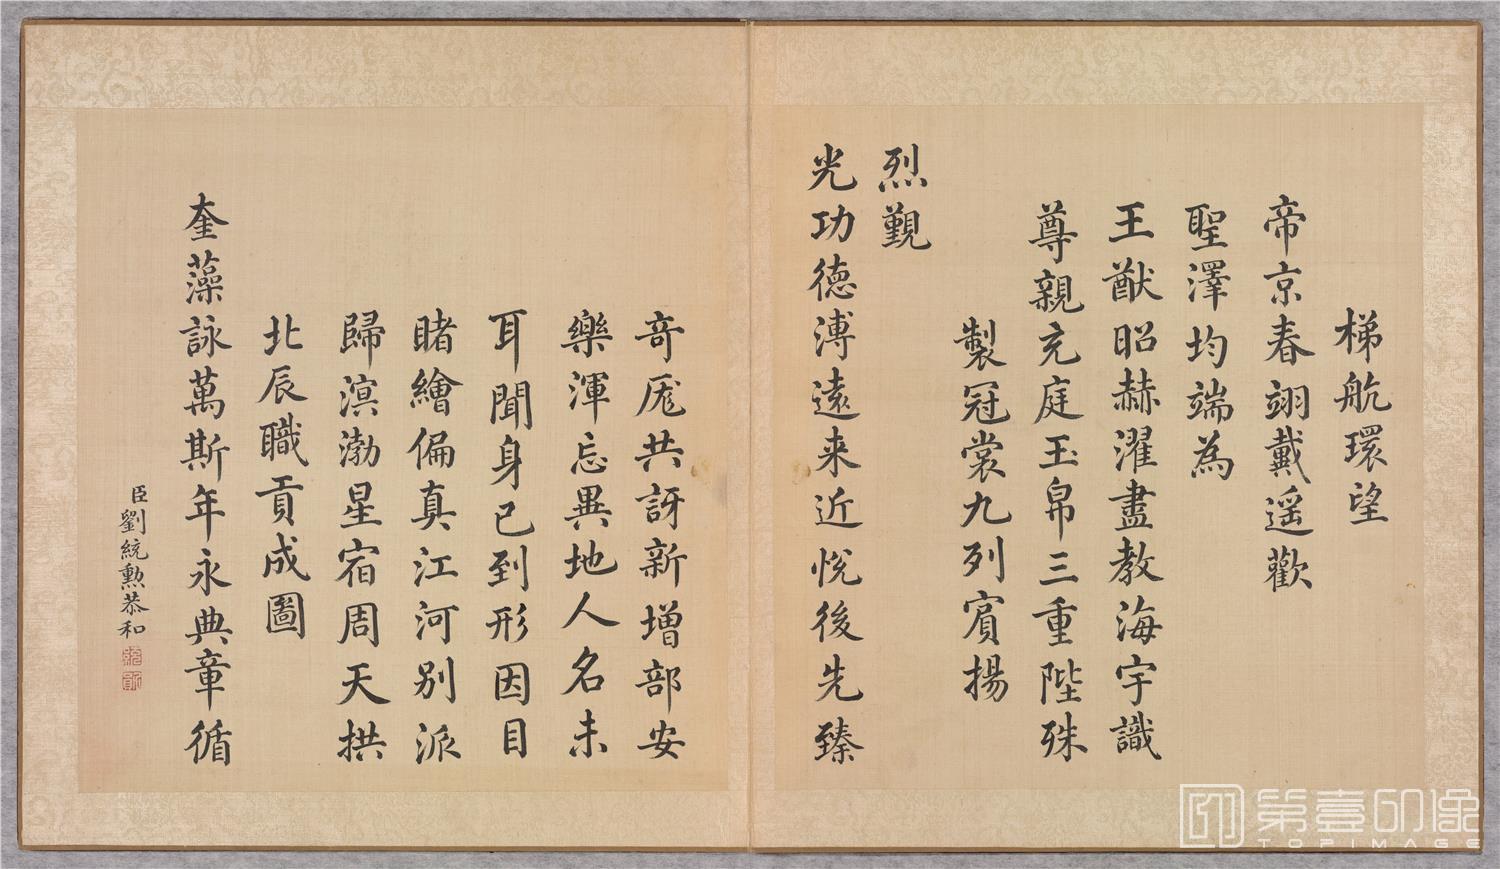 梯航環望
帝京春翊戴遥歡
聖澤均端為
王猷昭赫濯盡教海宇識
尊親充庭玉帛三重陛殊
製冠裳九列賓揚
烈覲
光功德溥遠来近悦後先臻
奇厖共訝新增部安
樂渾忘異地人名未
耳聞身已到形因目
睹繪偏真江河别派
歸溟渤星宿周天拱
北辰職貢成圖
奎藻詠萬斯年永典章循
臣劉統勲恭和
第壹印像
TOPIMAGE